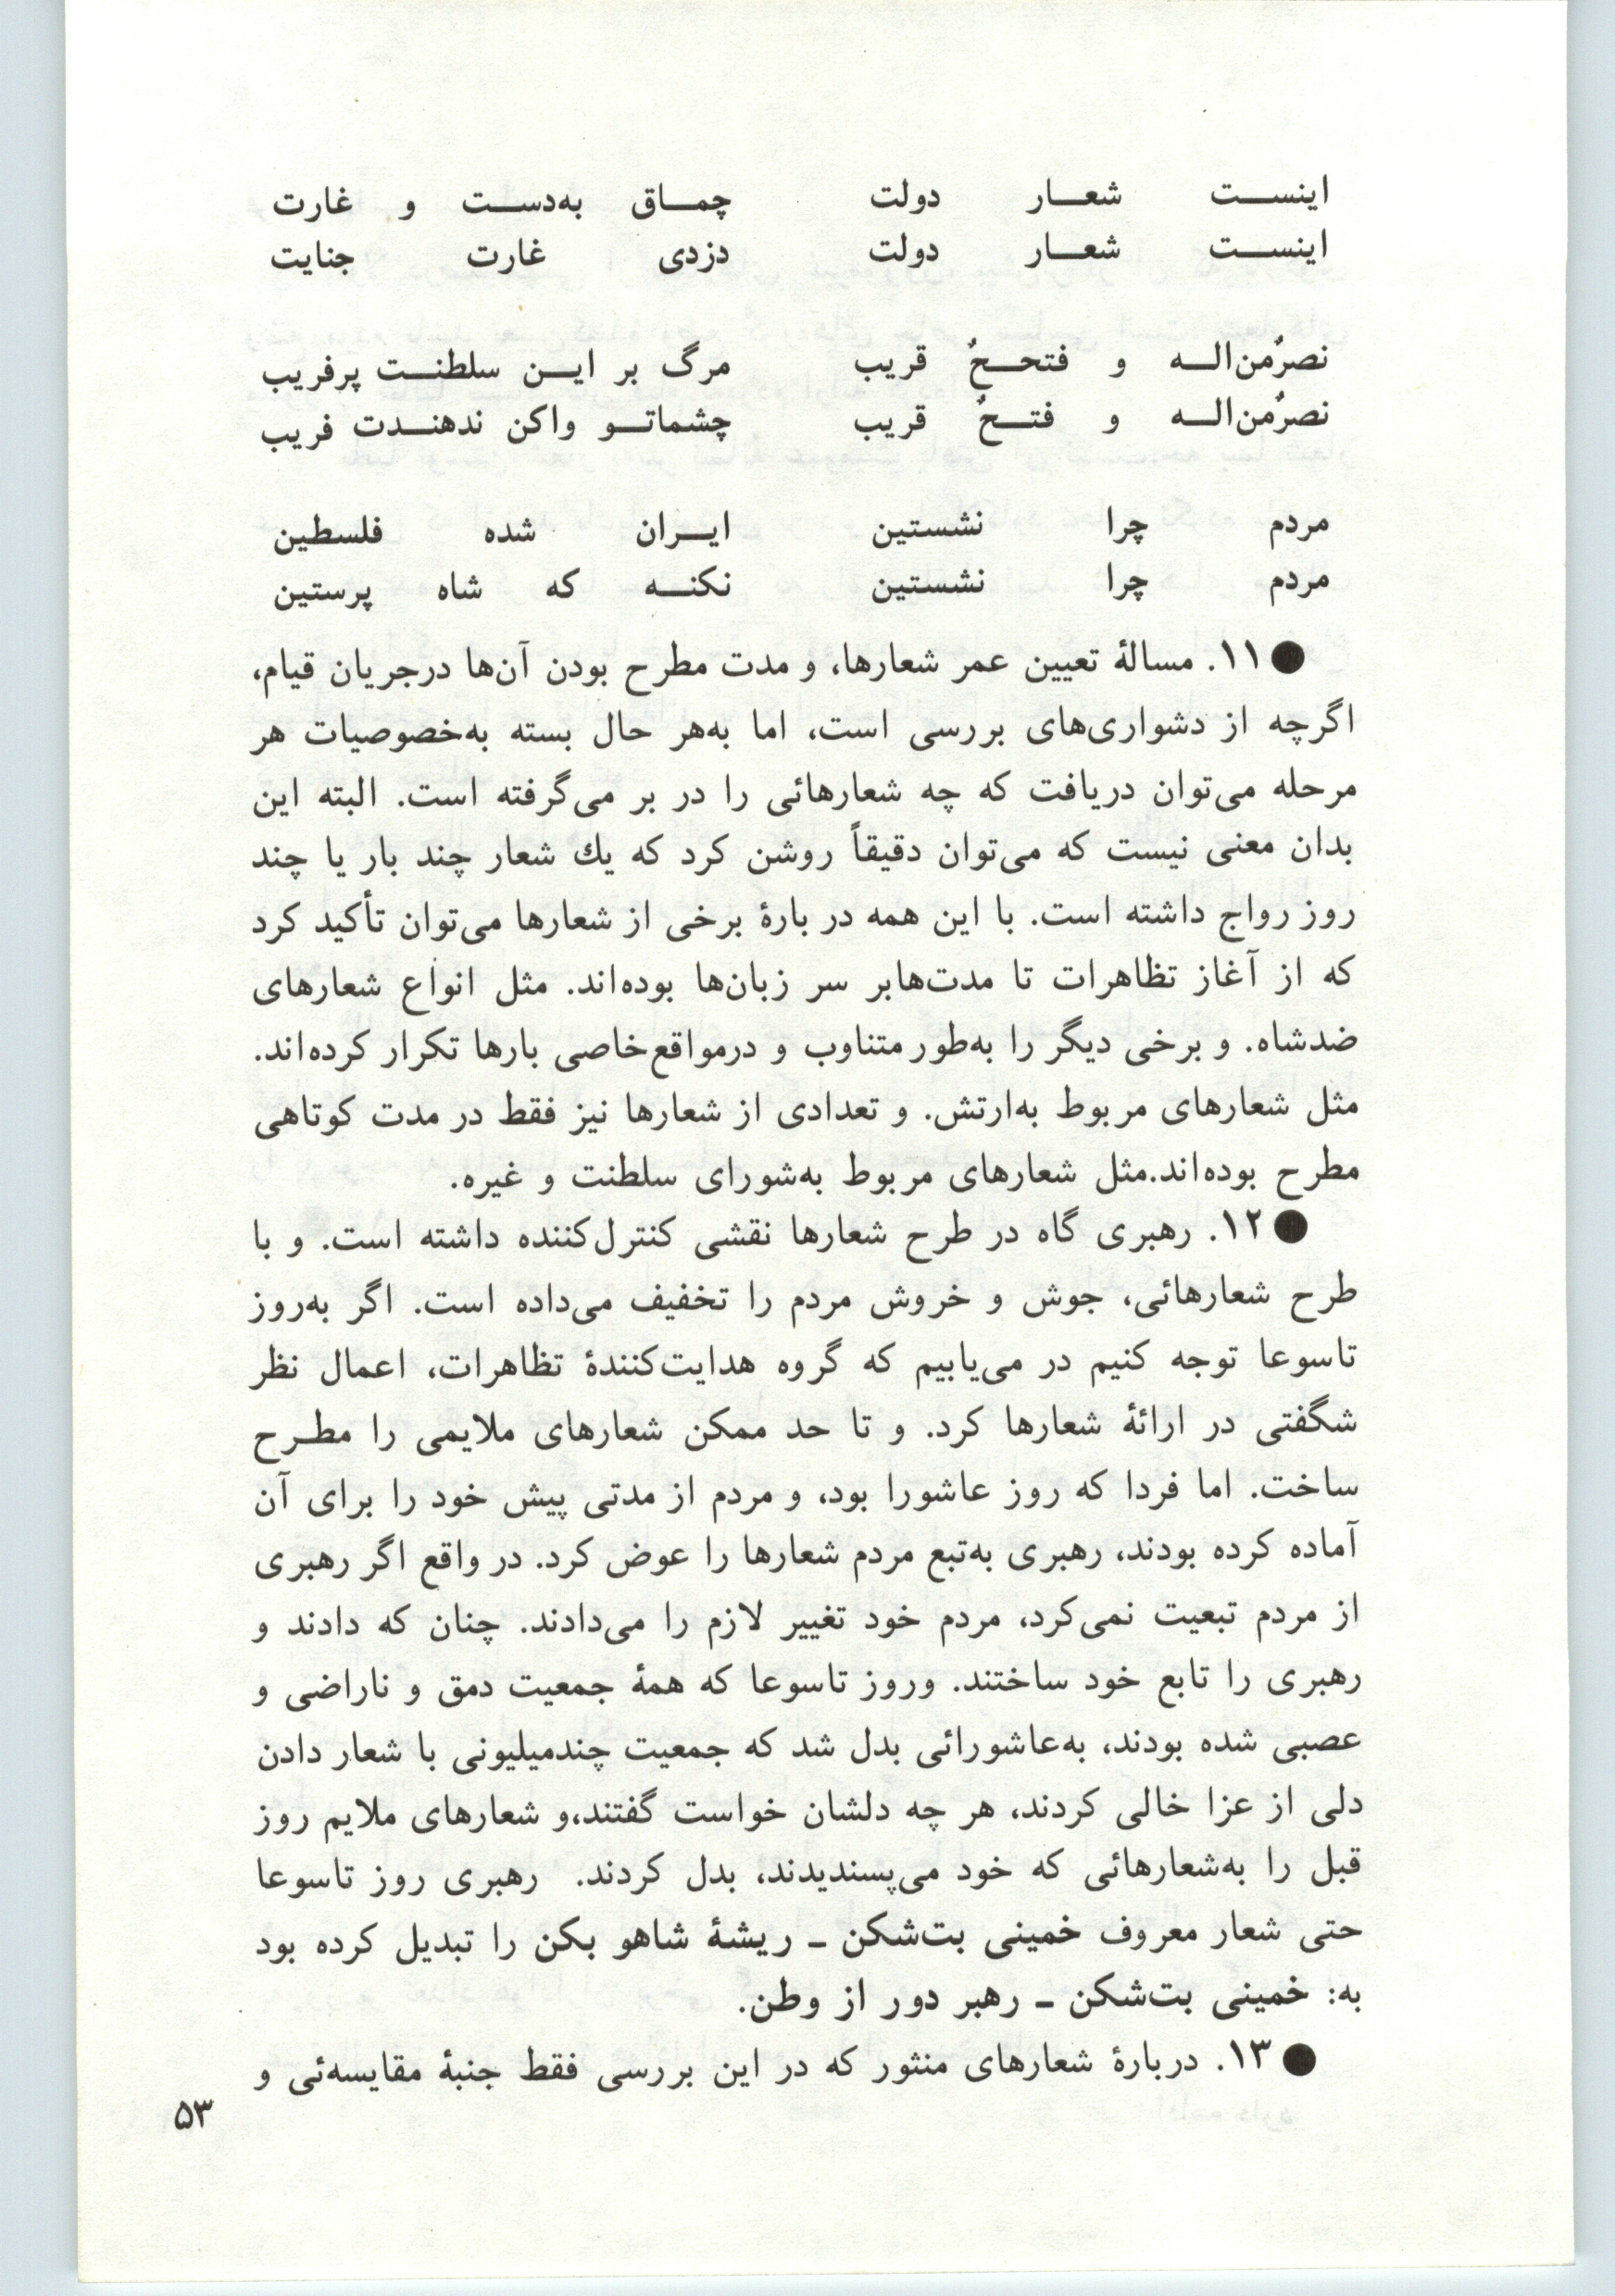 اینست شعار دولت چماق به‌دست و غارت
اینست شعار دولت دزدی غارت جنایت
نصرٌمن‌اله و فتححٌ قریب مرگ بر این سلطنت پرفریب
نصرٌمن‌اله و فتحٌ قریب چشماتو واکن ندهندت فریب
مردم چرا نشستین ایران شده فلسطین
مردم چرا نشستین نکنه که شاه پرستین
●۱۱. مسالهٔ تعیین عمر شعارها، و مدت مطرح بودن آن‌ها درجریان قیام،
اگرچه از دشواری‌های بررسی است، اما به‌هر حال بسته به‌خصوصیات هر
مرحله می‌توان دریافت که چه شعارهائی را در بر می‌گرفته است. البته این
بدان معنی نیست که می‌توان دقیقاً روشن کرد که یك شعار چند بار یا چند
روز رواج داشته است. با این همه در بارهٔ برخی از شعارها می‌توان تأکید کرد
که از آغاز تظاهرات تا مدت‌هابر سر زبان‌ها بوده‌اند. مثل انواع شعارهای
ضدشاه. و برخی دیگر را به‌طور متناوب و درمواقع‌خاصی بارها تکرار کرده‌اند.
مثل شعارهای مربوط به‌ارتش. و تعدادی از شعارها نیز فقط در مدت کوتاهی
مطرح بوده‌اند.مثل شعارهای مربوط به‌شورای سلطنت و غیره.
●۱۲. رهبری گاه در طرح شعارها نقشی کنترل‌کننده داشته است. و با
طرح شعارهائی، جوش و خروش مردم را تخفیف می‌داده است. اگر به‌روز
تاسوعا توجه کنیم در می‌یابیم که گروه هدایت‌کنندهٔ تظاهرات، اعمال نظر
شگفتی در ارائهٔ شعارها کرد. و تا حد ممکن شعارهای ملایمی را مطرح
ساخت. اما فردا که روز عاشورا بود، و مردم از مدتی پیش خود را برای آن
آماده کرده بودند، رهبری به‌تبع مردم شعارها را عوض کرد. در واقع اگر رهبری
از مردم تبعیت نمی‌کرد، مردم خود تغییر لازم را می‌دادند. چنان که دادند و
رهبری را تابع خود ساختند. وروز تاسوعا که همهٔ جمعیت دمق و ناراضی و
عصبی شده بودند، به‌عاشورائی بدل شد که جمعیت چندمیلیونی با شعار دادن
دلی از عزا خالی کردند، هر چه دلشان خواست گفتند،و شعارهای ملایم روز
قبل را به‌شعارهائی که خود می‌پسندیدند، بدل کردند. رهبری روز تاسوعا
حتی شعار معروف خمینی بت‌شکن ـ ریشهٔ شاهو بکن را تبدیل کرده بود
به: خمینی بت‌شکن ـ رهبر دور از وطن.
●۱۳. دربارهٔ شعارهای منثور که در این بررسی فقط جنبهٔ مقایسه‌ئی و
۵۳